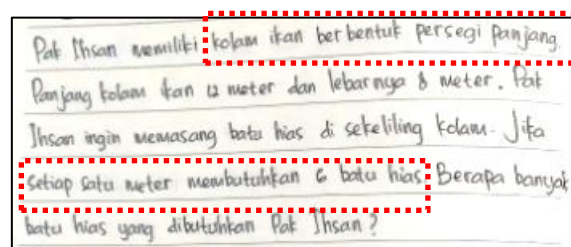 Pak Ihsan memiliki kolam ikan berbentuk persegi panjang.
Panjang kolam ikan 12 meter dan lebarnya 8 meter. Pak
Ihsan ingin memasang batu hias di sekeliling kolam. Jika
setiap satu meter membutuhkan 6 batu hias. Berapa banyak
batu hias yang dibutuhkan Pak Ihsan?